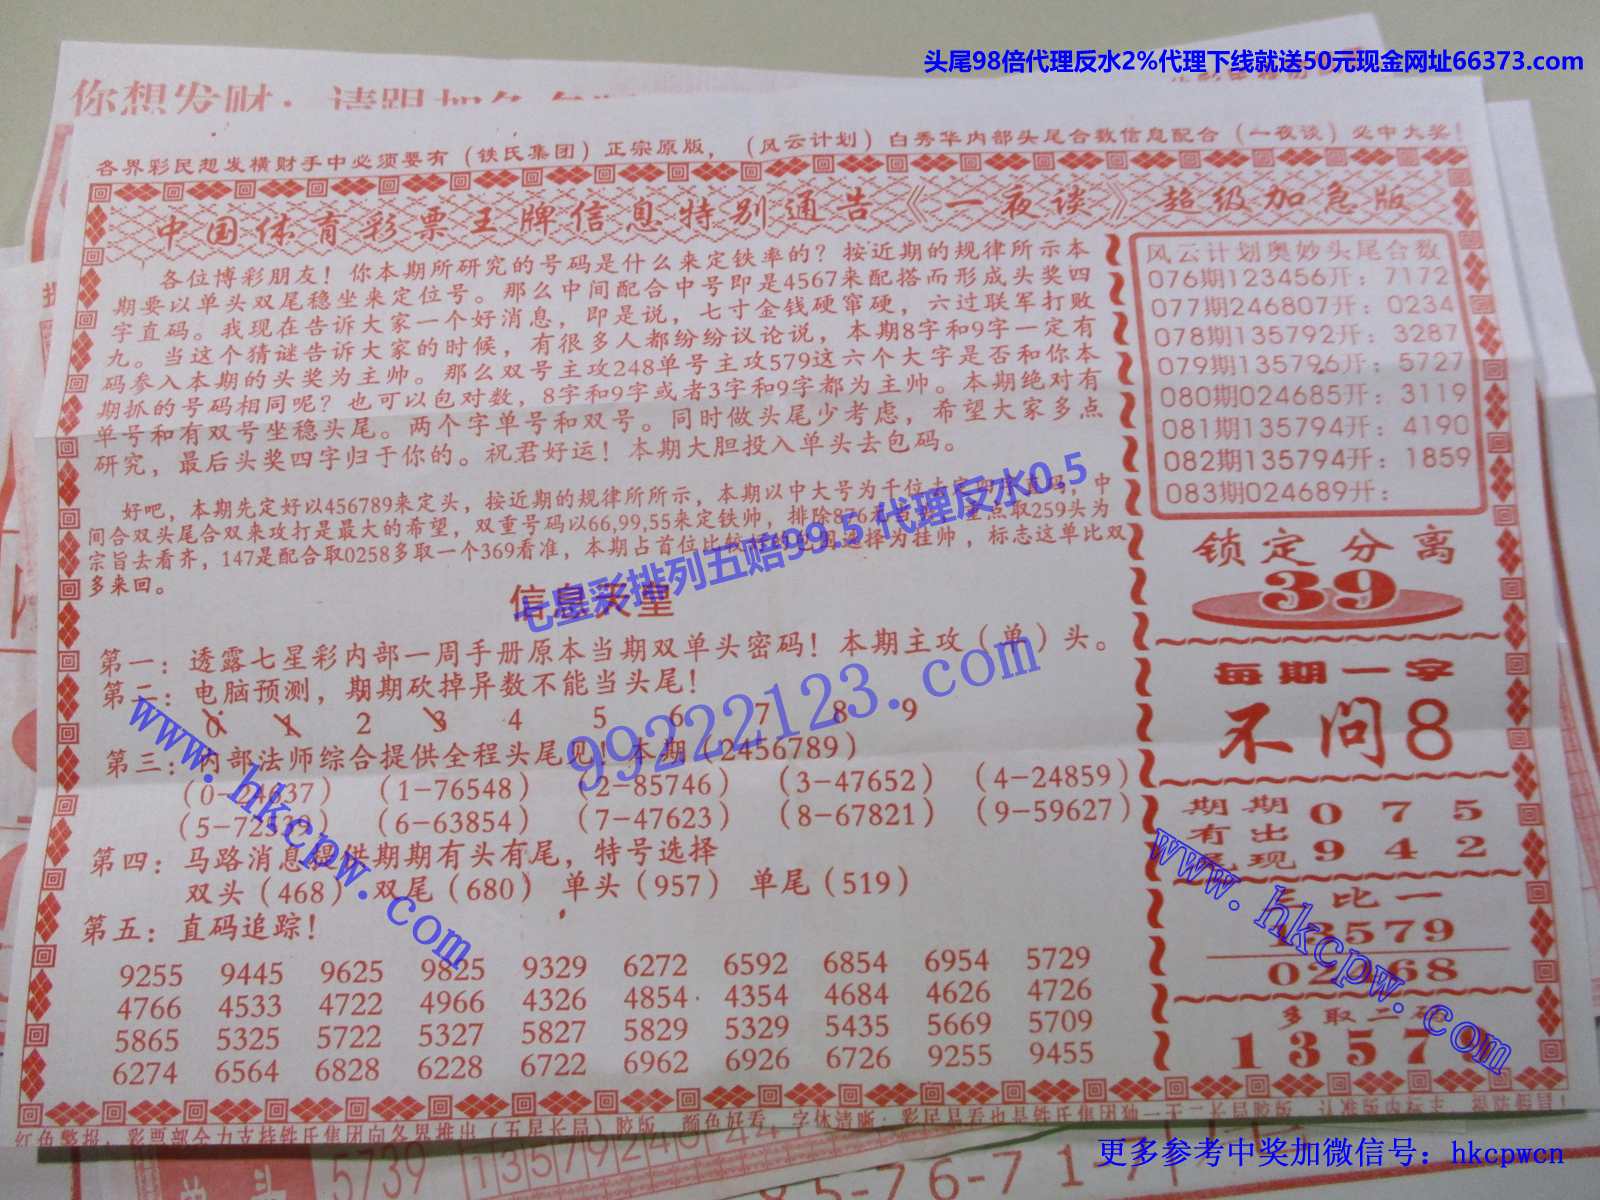 头尾98倍代理反水2%代理下线就送50元现金网址66373.com
你想发财：请跟
各界彩民想发横财手中必须要有（铁氏集团）正宗原版，（风云计划）白秀华内部头尾合数信息配合（一夜谈）必中大奖！
中国体育彩票王牌信息特别通告《一夜谈》超级加急版
各位博彩朋友！你本期所研究的号码是什么来定铁率的？按近期的规律所示本
期要以单头双尾稳坐来定位号。那么中间配合中号即是4567来配搭而形成头奖四
字直码。我现在告诉大家一个好消息，即是说，七寸金钱硬窜硬，六过联军打败
九。当这个猜谜告诉大家的时候，有很多人都纷纷议论说，本期8字和9字一定有
码参入本期的头奖为主帅。那么双号主攻248单号主攻579这六个大字是否和你本
期抓的号码相同呢？也可以包对数，8字和9字或者3字和9字都为主帅。本期绝对有
单号和有双号坐稳头尾。两个字单号和双号。同时做头尾少考虑，希望大家多点
研究，最后头奖四字归于你的。祝君好运！本期大胆投入单头去包码。
好吧，本期先定好以456789来定头，按近期的规律所所示，本期以中大号为千位
间合双头尾合双来攻打是最大的希望，双重号码以66,99,55来定铁帅，排除876 点取259头为
宗旨去看齐，147是配合取0258多取一个369看准，本期占首位比较 选择为挂帅，标志这单比双
多来回。
七星彩排列五赔99.5 代理反水0.5
信息天堂
第一：透露七星彩内部一周手册原本当期双单头密码！本期主攻（单）头。
第二：电脑预测，期期砍掉异数不能当头尾！
0 1 2 3 4 5 6 7 8 9
99222123.com
第三：内部法师综合提供全程头尾见！本期（2456789）
（1-76548） （2-85746） （3-47652） （4-24859）
（6-63854） （7-47623） （8-67821） （9-59627）
第四：马路消息提供期期有头有尾，特号选择
双头（468） 双尾（680） 单头（957） 单尾（519）
第五：直码追踪！
9255 9445 9625 9825 9329 6272 6592 6854 6954 5729
4766 4533 4722 4966 4326 4854 4354 4684 4626 4726
5865 5325 5722 5327 5827 5829 5329 5435 5669 5709
6274 6564 6828 6228 6722 6962 6926 6726 9255 9455
www.hkcpw.com
风云计划奥妙头尾合数
076期123456开：7172
077期246807开：0234
078期135792开：3287
079期135796开：5727
080期024685开：3119
081期135794开：4190
082期135794开：1859
083期024689开：
锁定分离
39
每期一字
不问8
期期 0 7 5
有出
现 9 4 2
比一
13579
02468
多取二码
1 3 5 7 9
www.hkcpw.com
红色警报：彩票部全力支持铁氏集团向各界推出（五星长局）胶版，颜色好看，字体清晰；
5739
更多参考中奖加微信号：hkcpwcn